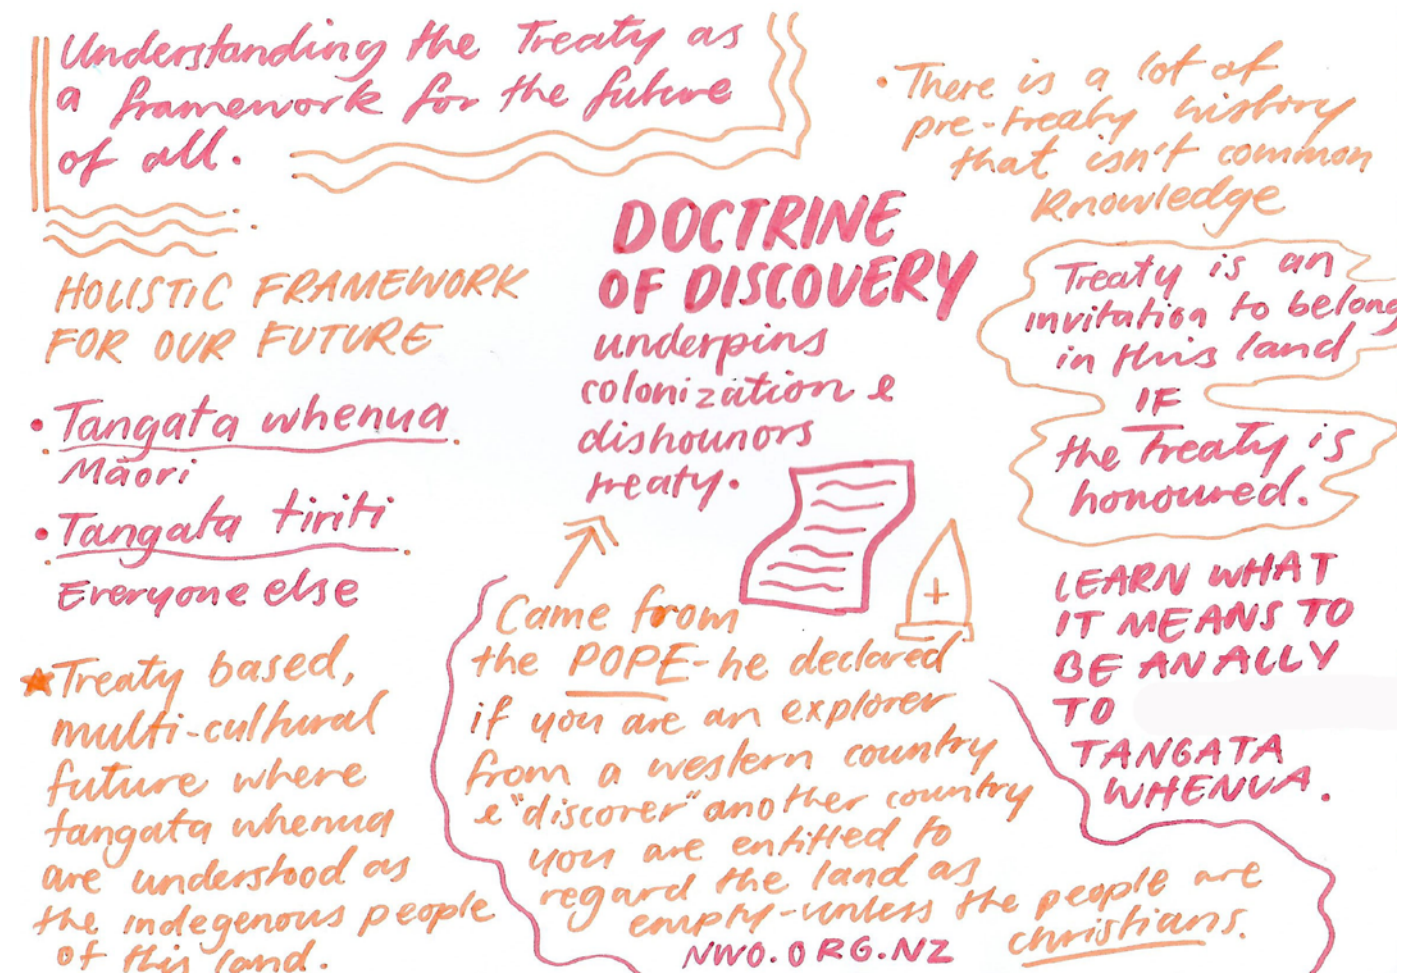 Understanding the Treaty as
a framework for the future
of all.
HOLISTIC FRAMEWORK
FOR OUR FUTURE
• Tangata whenua
Māori
• Tangata tiriti
Everyone else
★ Treaty based,
multi-cultural
future where
tangata whenua
are understood as
the indegenous people
of this land.
DOCTRINE
OF DISCOVERY
underpins
colonization &
dishounors
treaty.
Came from
the POPE - he declared
if you are an explorer
from a western country
& "discover" another country
you are entitled to
regard the land as
empty - unless the people are
christians.
NWO.ORG.NZ
• There is a lot of
pre-treaty history
that isn't common
knowledge
Treaty is an
invitation to belong
in this land
IF
the Treaty is
honoured.
LEARN WHAT
IT MEANS TO
BE AN ALLY
TO
TANGATA
WHENUA.